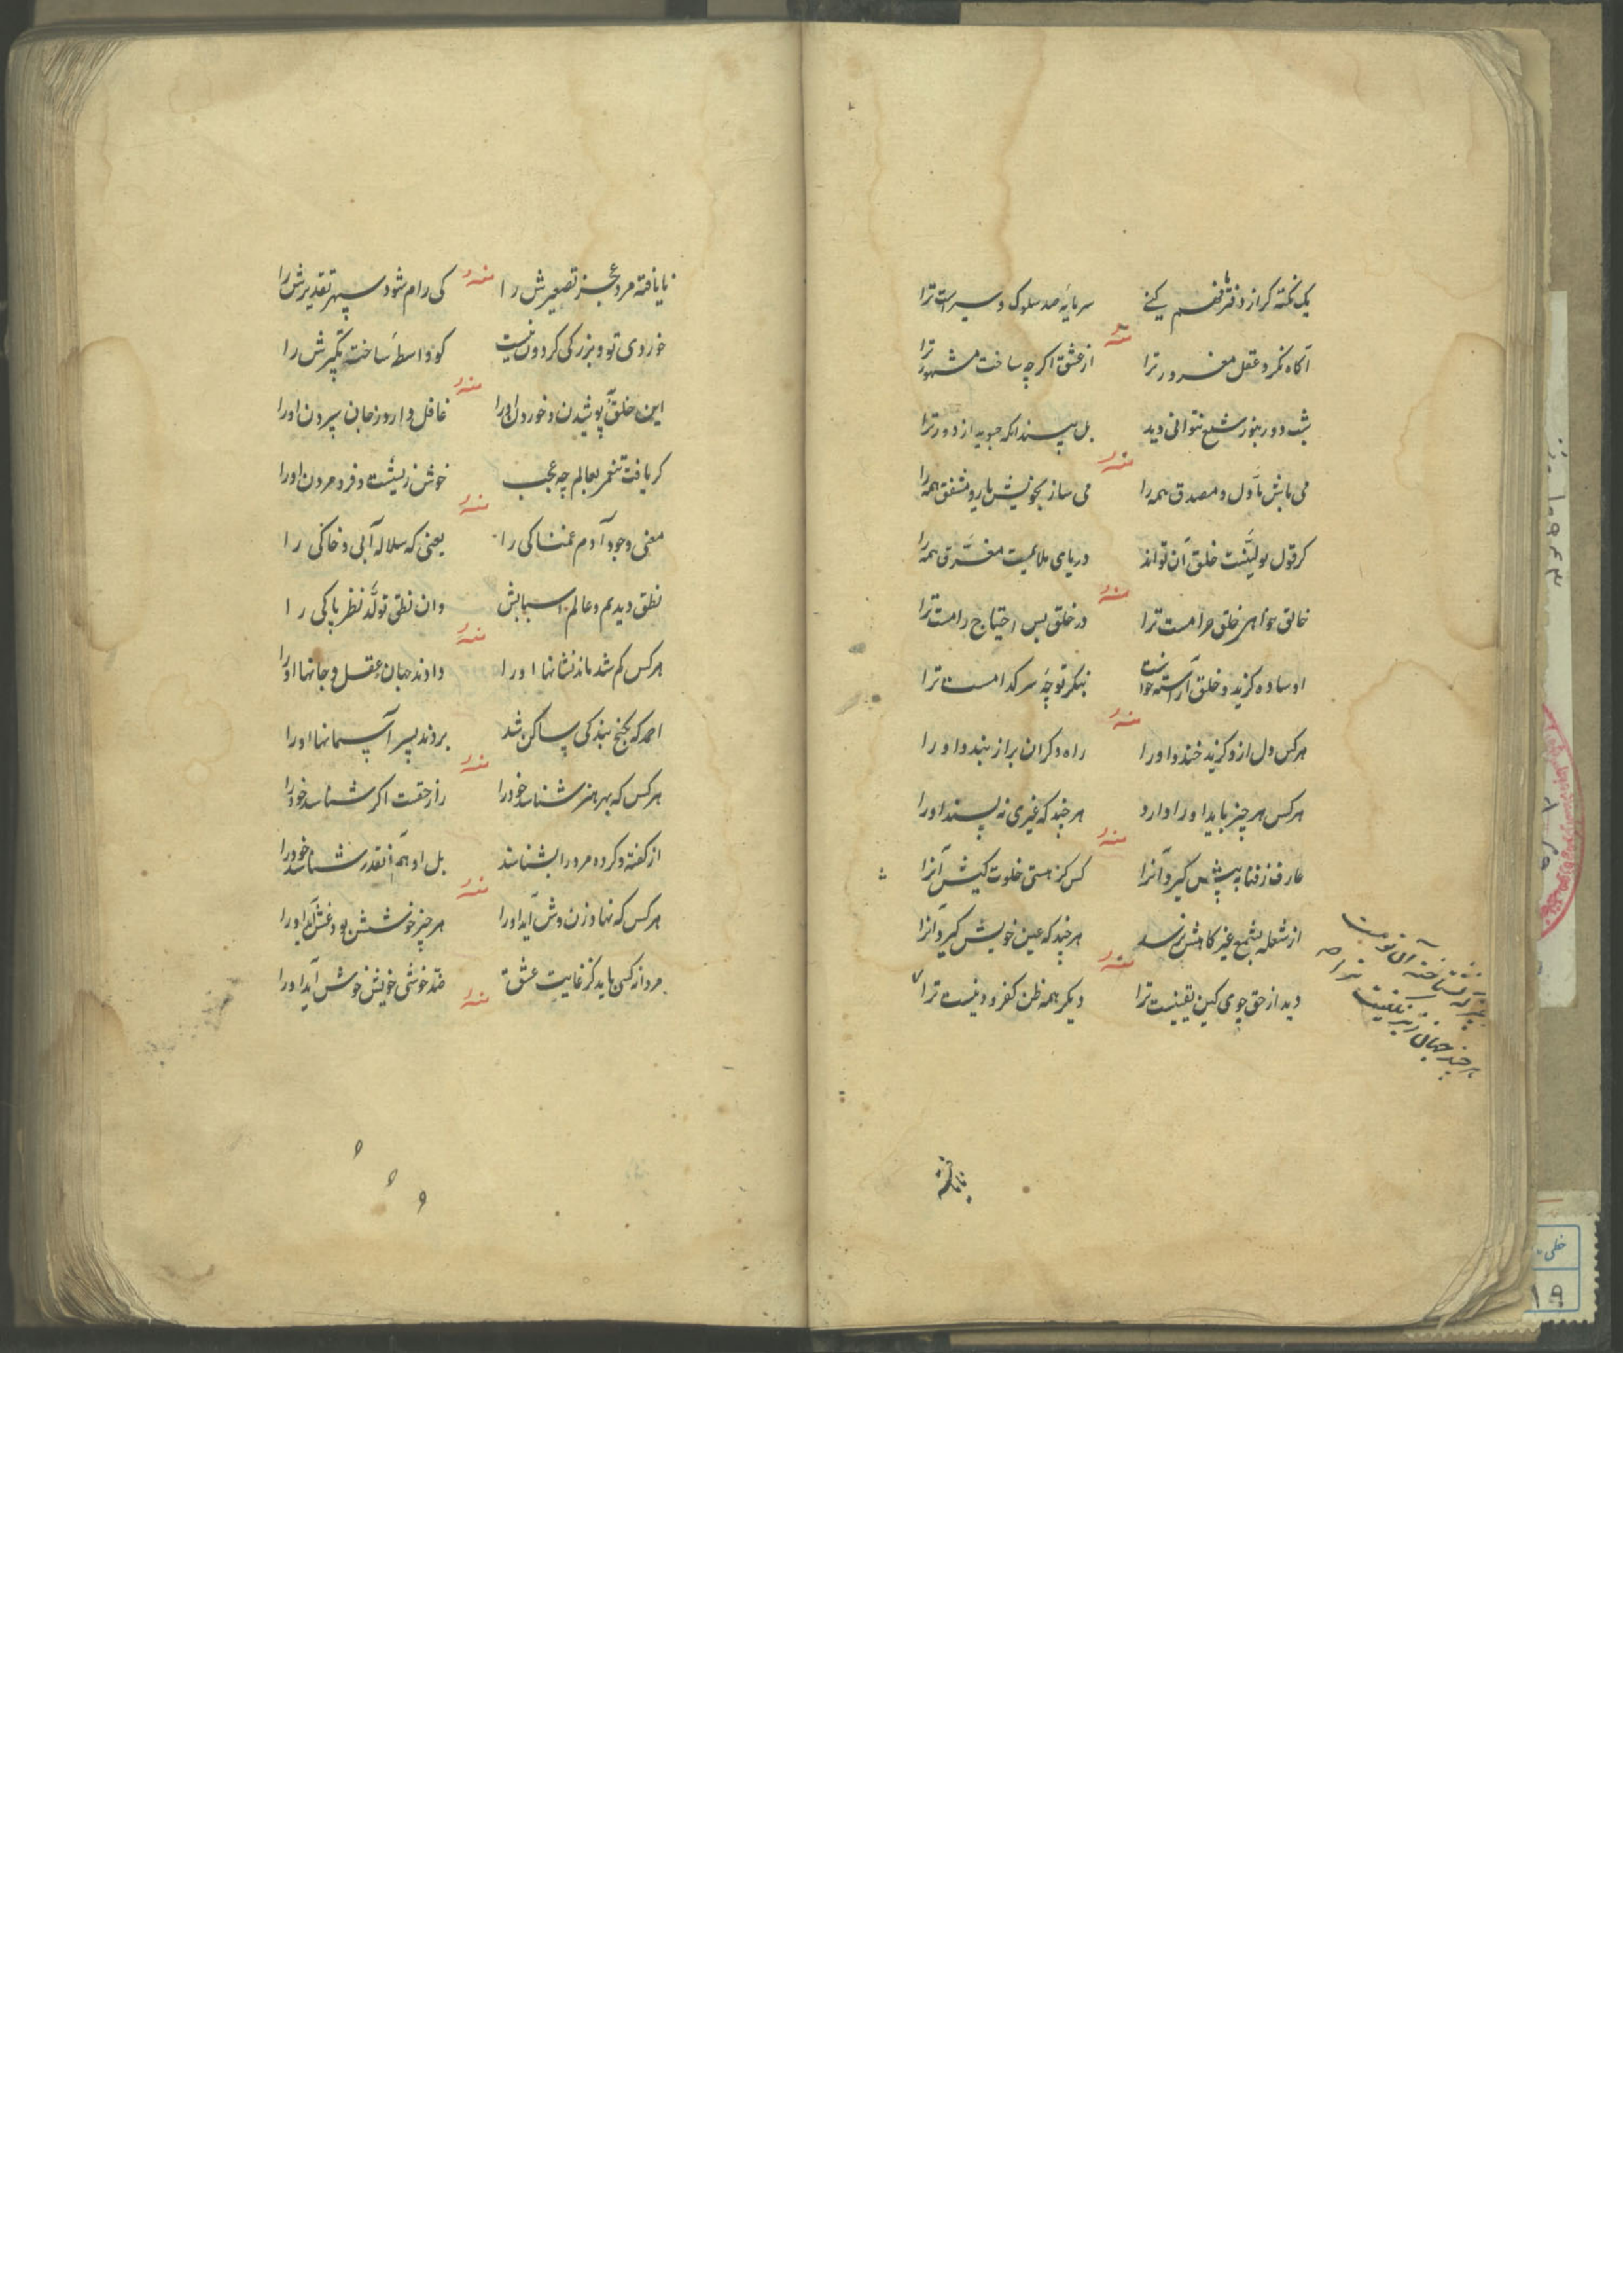 یک نکته کر از دفتر ما فهم کنی سرمایه صد سلوک و سیرست ترا
منه
آکاه نکرد عقل مغرور ترا از عشق اکر چه ساخت مشهور ترا
شب دور بنور شمع نتوانی دید بل بیند انکه جوید از دور ترا
منه
می باش ماول و مصدق همه را می ساز بخویش یار و مشفق همه را
کر قول تو لینست خلق آن تواند دریای ملایمیت مغرق همه را
منه
خالق خواهی خلق حرامست ترا در خلق بس احتیاج رامست ترا
او ساده کزید و خلق آراسته خواست بنکر تو چه سر کدامست ترا
منه
هر کس دل ازو کزید خندد او را راه دکران براز بندد او را
هر کس هر چیز باید او را دارد هر چند که غیری نه پسندد او را
منه
عارف ز فنا به پیش کیرد آنرا کس کز هستی خلوت کیش آنرا
از شعله بشمع غیر کاهش نرسد هر چند که عین خویش کیرد آنرا
منه
دید از حق جوی کین یقینیست ترا دیکر همه ظن کفر و دنیست ترا
هر چند جهان زیر نکینیست ترا
نایافته
نایافته مرد عجز تصغیرش را کی رام شود سپهر تقدیرش را
منه
خوردی تو و بزرکی کردون نیست کو واسطه ساخت بکبرش را
منه
این خلق پوشیدن و خوردن او را غافل دارد ز جان سپردن او را
کر یافت تنعم بعالم چه عجب خوش زیست و فرو مردن او را
منه
معنی وجود آدم غمناکی را یعنی که سلاله آبی و خاکی را
نطق دیدیم و عالم اسبابش وان نطق تولد نظر پاکی را
منه
هر کس کم شد ماند نشانها او را دادند جهان عقل و جانها او را
احمد که بکنج بندکی ساکن شد بردند بسر آسمانها او را
منه
هر کس که بهر هنر شناسد خود را راز حقست اکر شناسد خود را
از کفته و کرده مرد را بشناسند بل او هم آنقدر شناسد خود را
منه
هر کس که نهاد زن وش آید او را هر چیز خوشش بود غش آید او را
مردانه کسی باید کز غایت عشق ضد خوشی خویش خوش آید او را
منه
خطی
۱۹